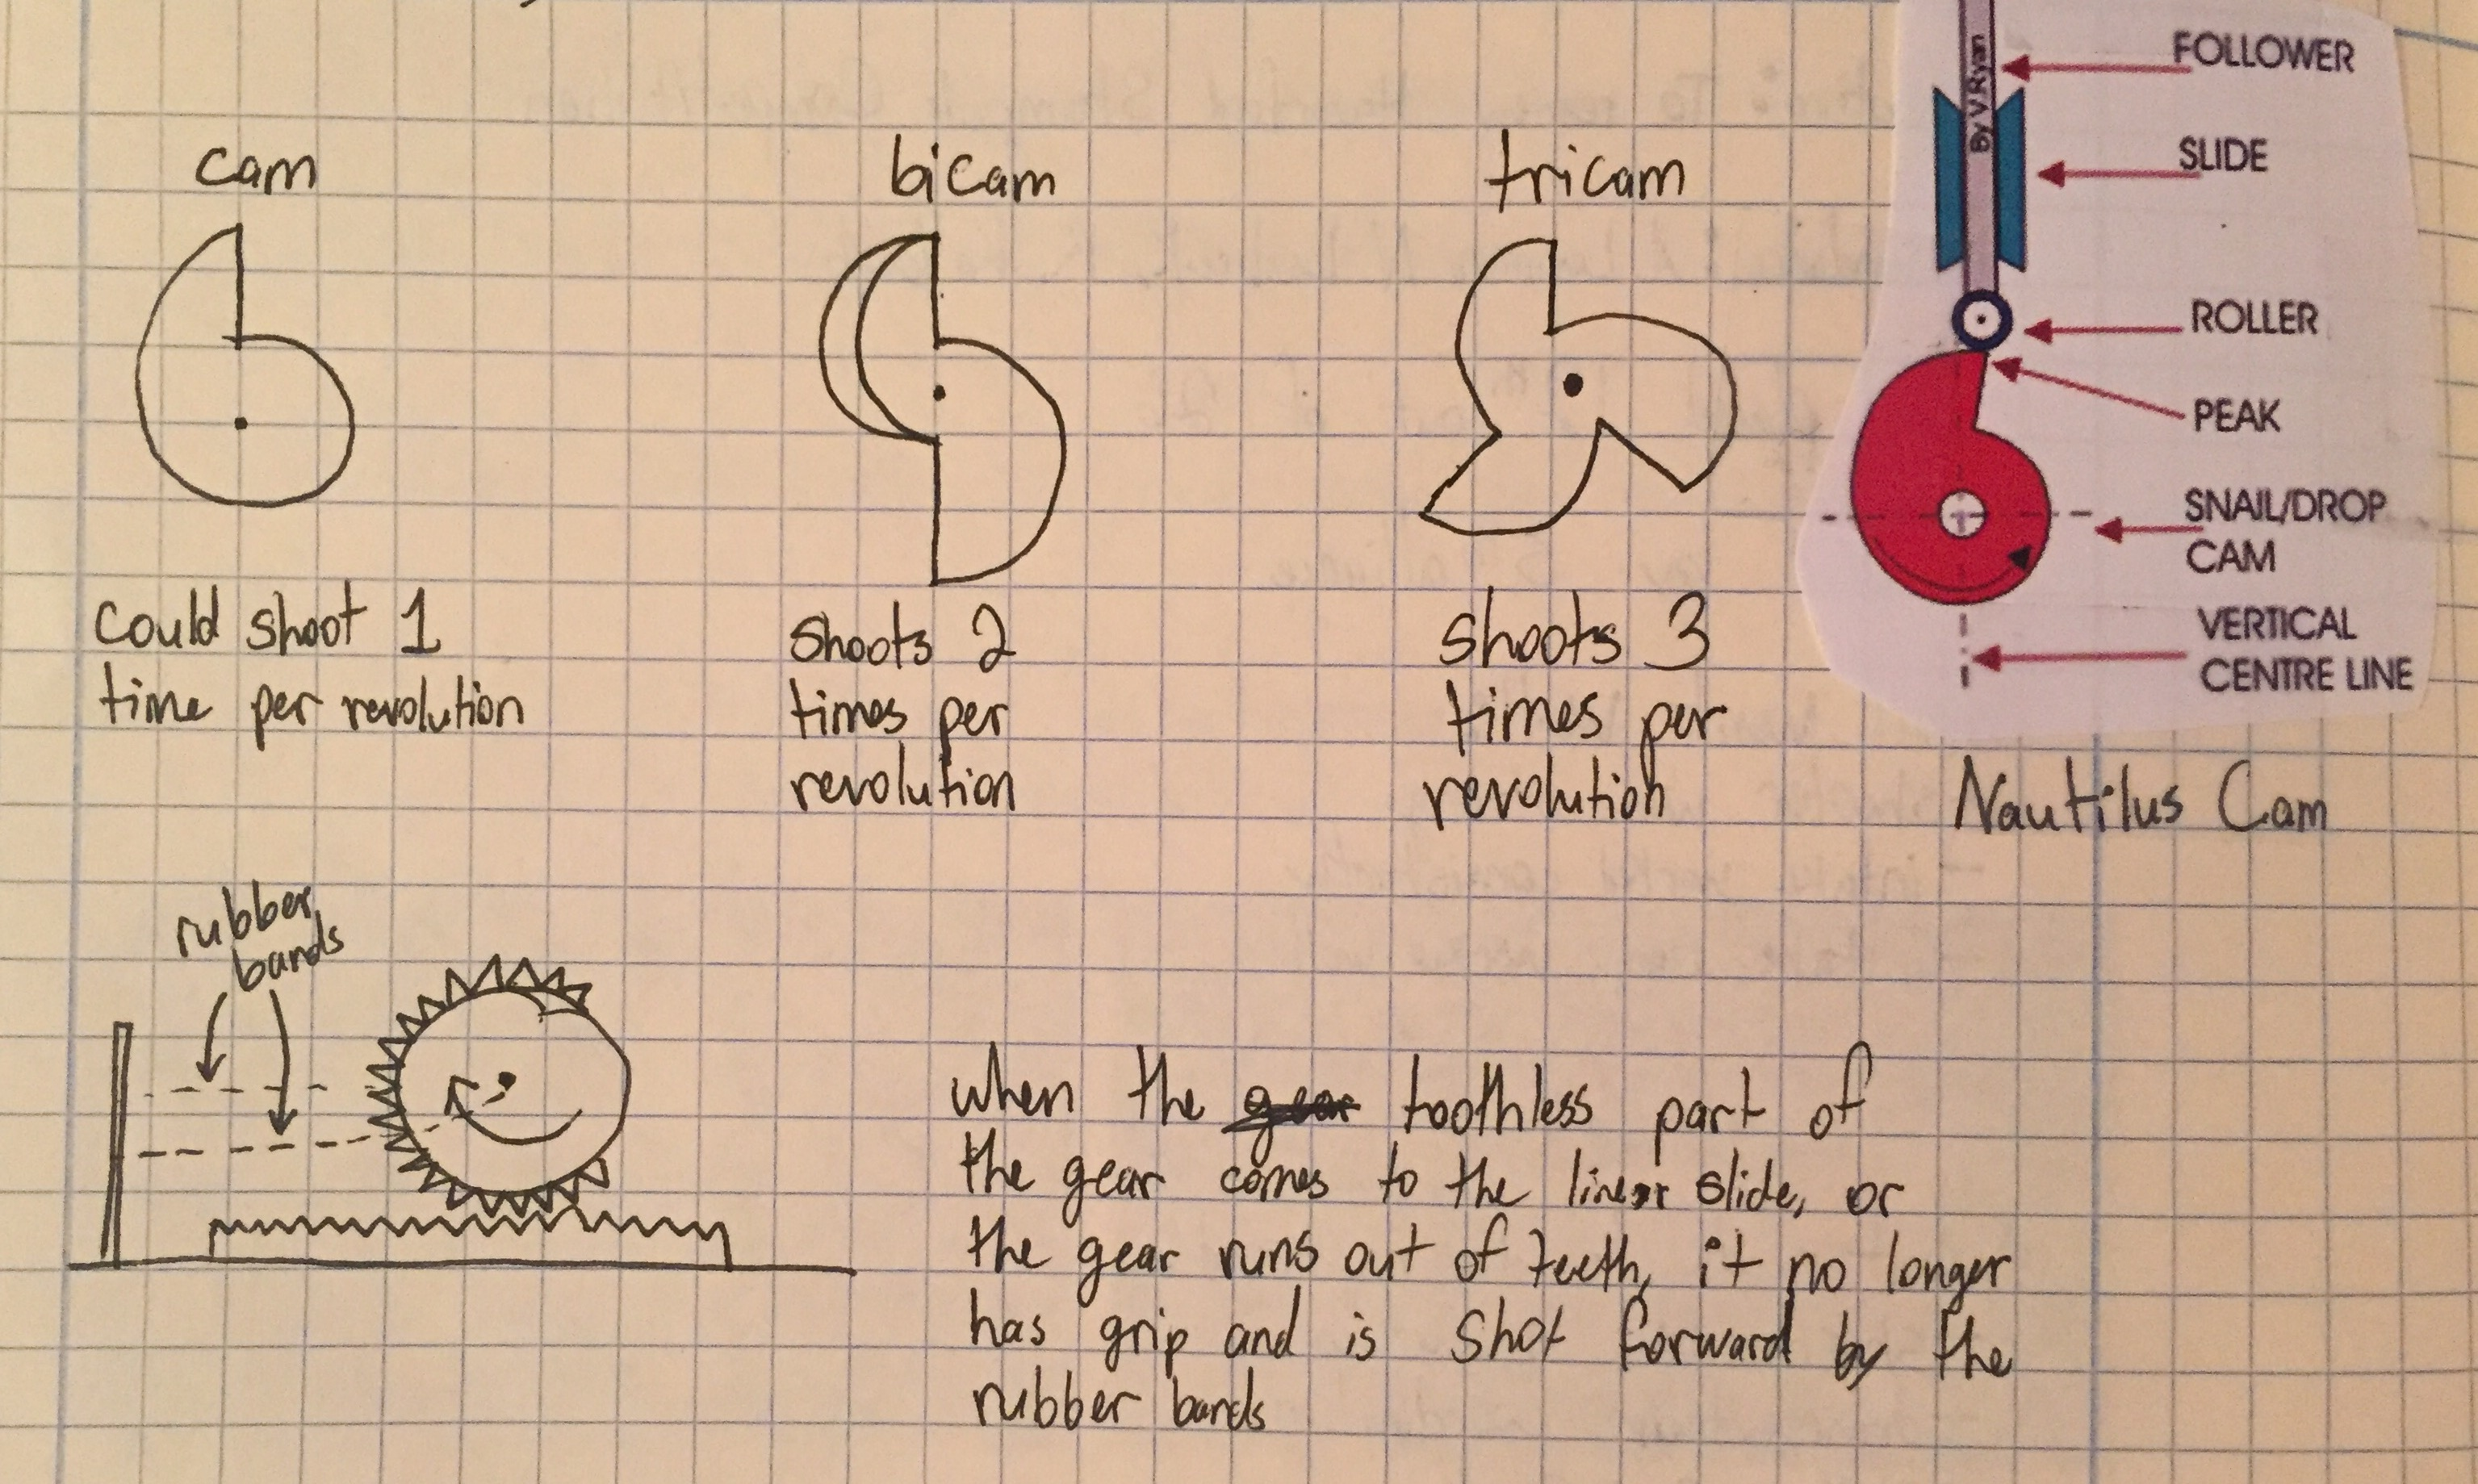 cam
could shoot 1
time per revolution
bicam
shoots 2
times per
revolution
tricam
shoots 3
times per
revolution
By V.Ryan
FOLLOWER
SLIDE
ROLLER
PEAK
SNAIL/DROP
CAM
VERTICAL
CENTRE LINE
Nautilus Cam
rubber
bands
when the gear toothless part of
the gear comes to the linear slide, or
the gear runs out of teeth, it no longer
has grip and is shot forward by the
rubber bands